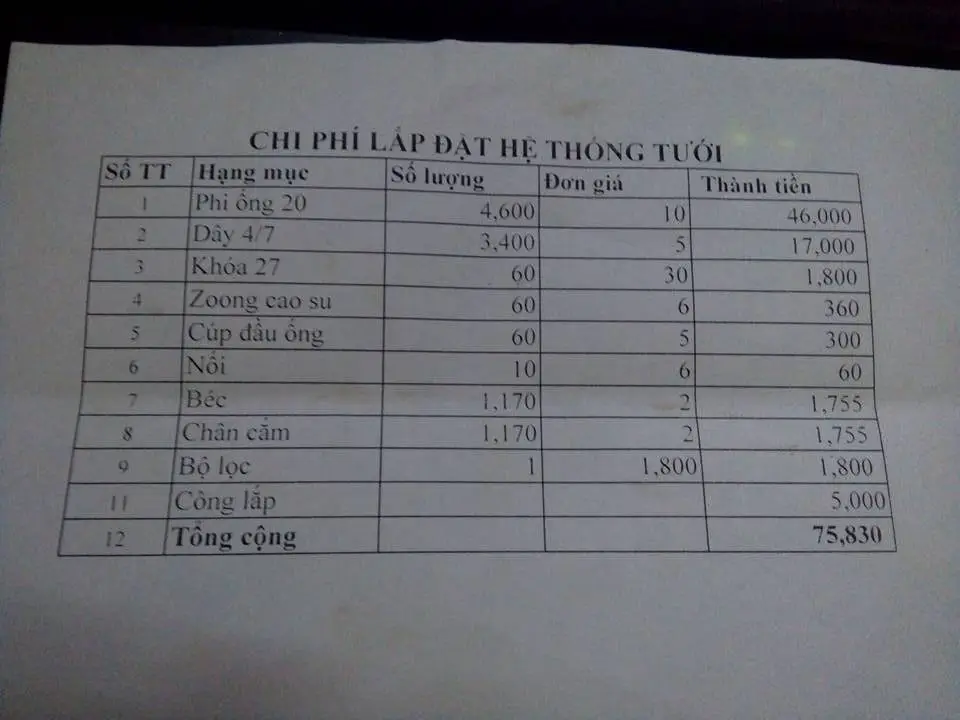 CHI PHÍ LẮP ĐẶT HỆ THỐNG TƯỚI
Số TT Hạng mục Số lượng Đơn giá Thành tiền
1 Phi ống 20 4,600 10 46,000
2 Dây 4/7 3,400 5 17,000
3 Khóa 27 60 30 1,800
4 Zoong cao su 60 6 360
5 Cúp đầu ống 60 5 300
6 Nối 10 6 60
7 Béc 1,170 2 1,755
8 Chân cắm 1,170 2 1,755
9 Bộ lọc 1 1,800 1,800
11 Công lắp 5,000
12 Tổng cộng 75,830